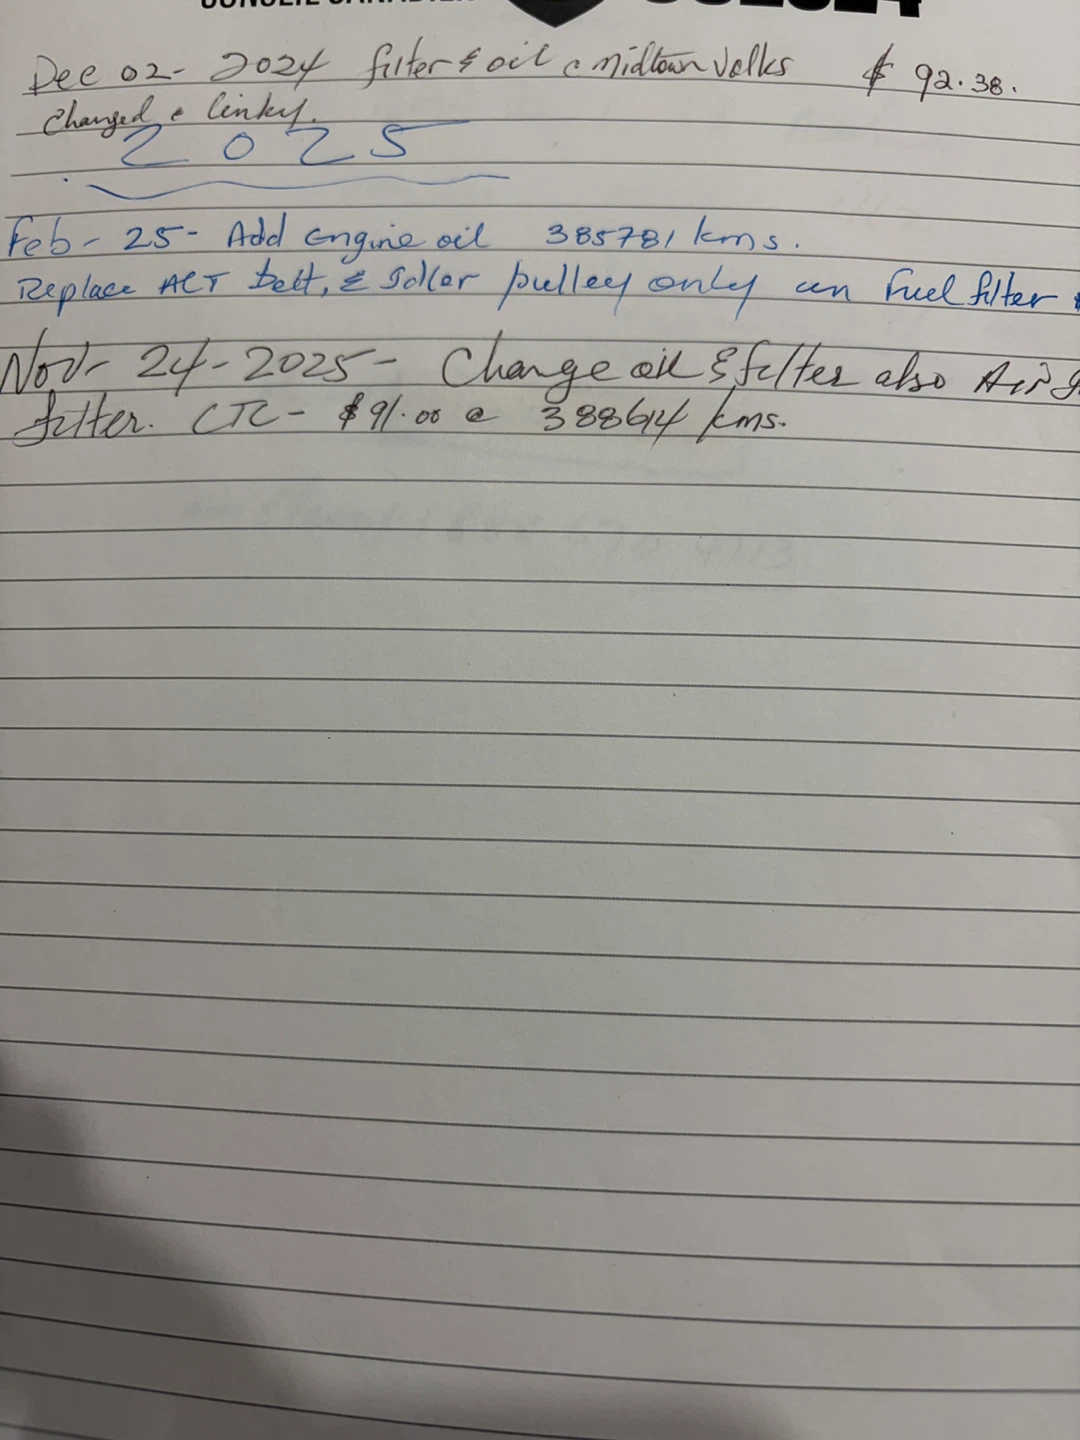 Dec 02 - 2024 filter & oil @ Midtown Volks $ 92.38.
Changed @ linky.
2025
Feb - 25 - Add engine oil 385781 kms.
Replace ALT belt, & Idler pulley only un Fuel filter
Nov - 24 - 2025 - Change oil & filter also Air
filter. CTC - $91.00 @ 388614 kms.